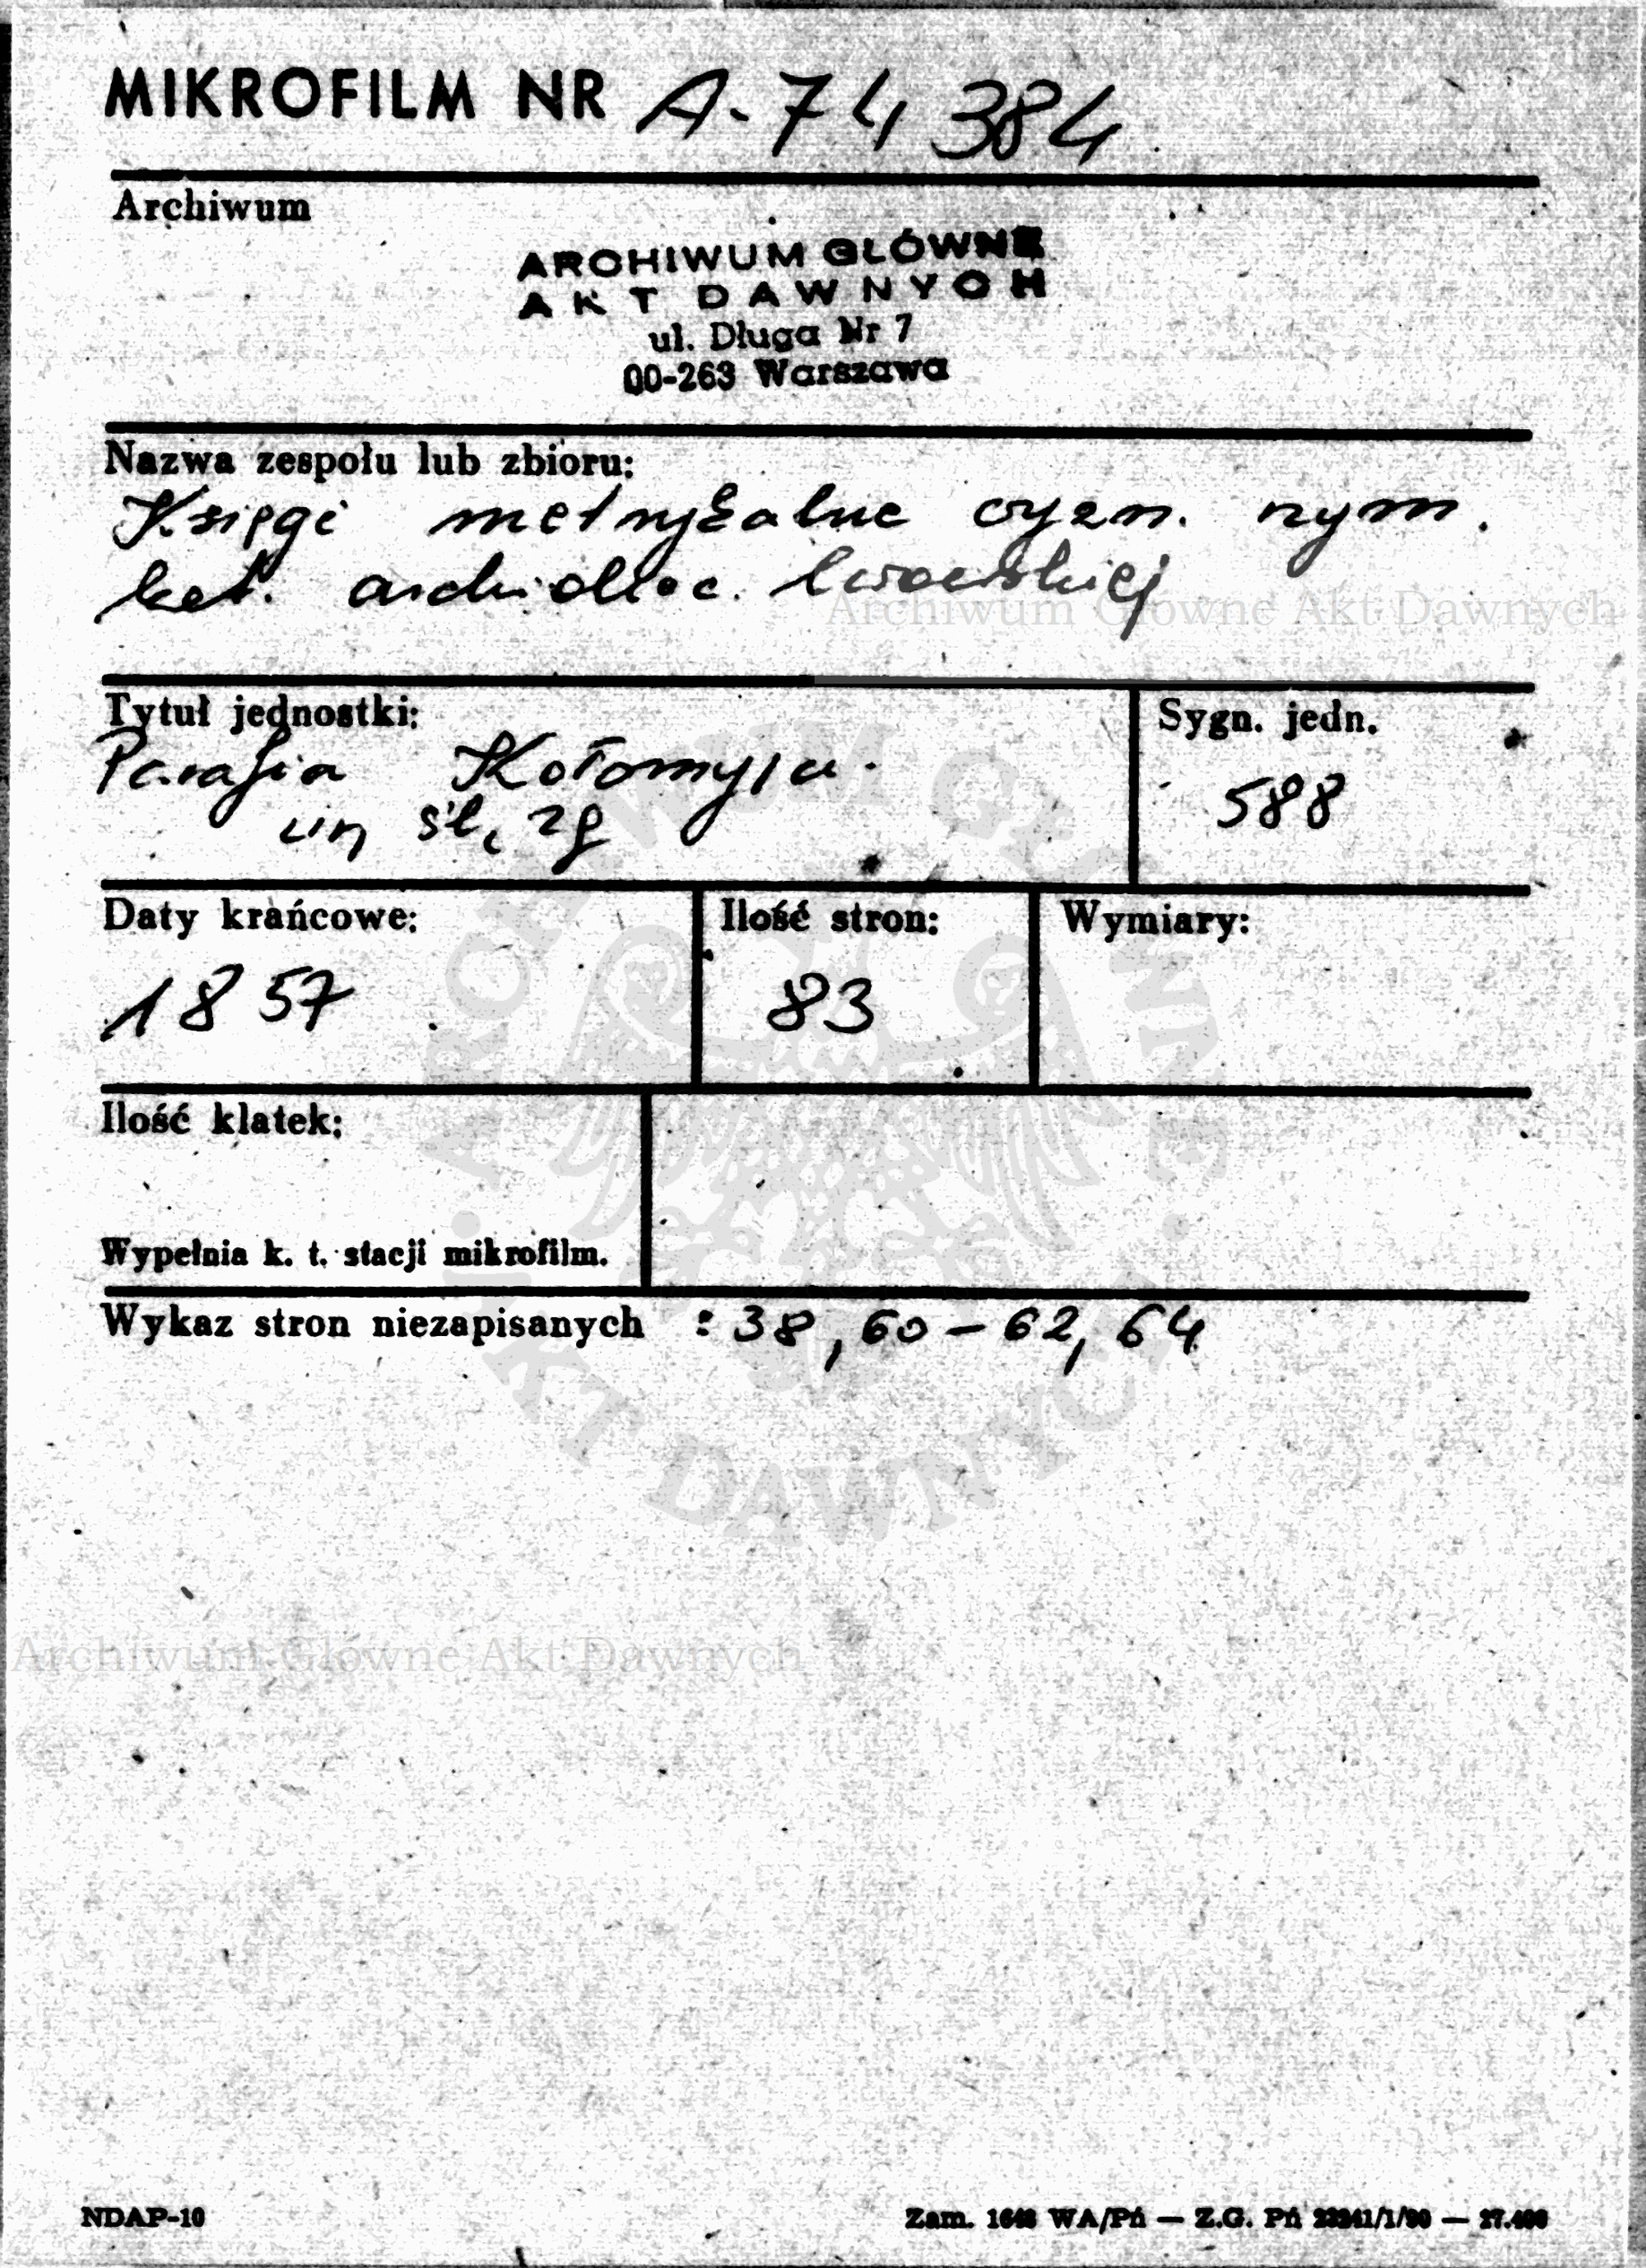 MIKROFILM NR A-74 384
Archiwum
ARCHIWUM GŁÓWNE
AKT DAWNYCH
ul. Długa Nr 7
00-263 Warszawa
Nazwa zespołu lub zbioru:
Księgi metrykalne wyzn. rzym.
kat. archidiec. lwowskiej
Archiwum Główne Akt Dawnych
Tytuł jednostki:
Parafia Kołomyja
ur, śl, zg
Sygn. jedn.
588
Daty krańcowe:
1857
Ilość stron:
83
Wymiary:
Ilość klatek:
Wypełnia k. t. stacji mikrofilm.
Wykaz stron niezapisanych : 38, 60-62, 64
ARCHIWUM GŁÓWNE
AKT DAWNYCH
Archiwum Główne Akt Dawnych
NDAP-10
Zam. WA/Pń — Z.G. Pń